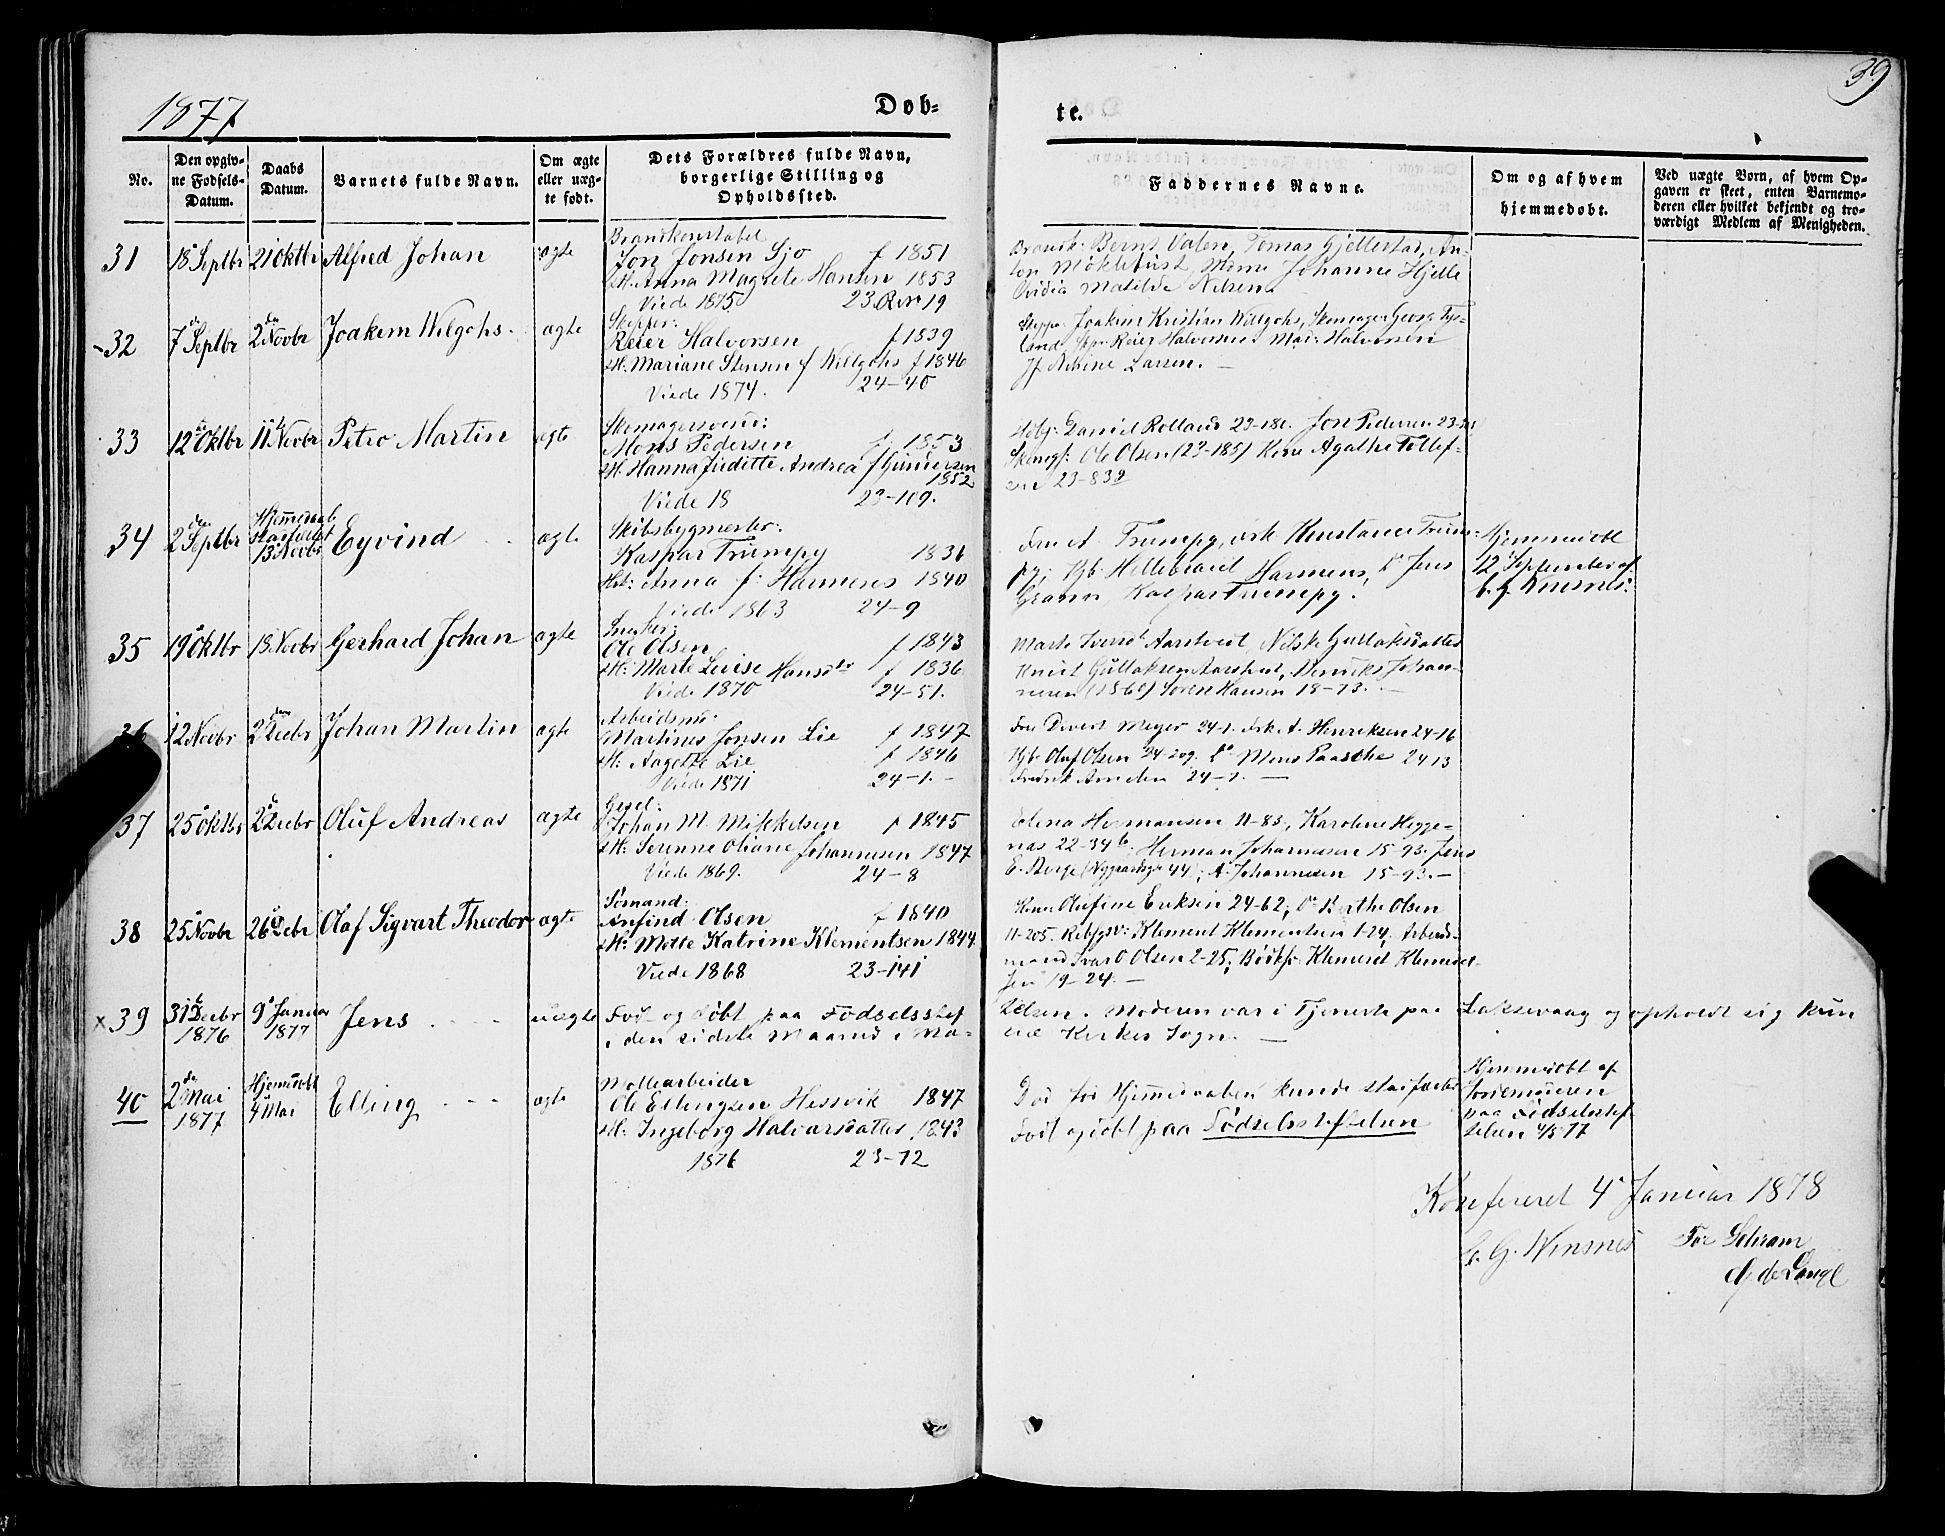 1877
Døb-
te.
39
No.
Den opgiv-
ne Fødsels-
Datum.
Daabs
Datum.
Barnets fulde Navn.
Om ægte
eller uæg-
te født.
Dets Forældres fulde Navn,
borgerlige Stilling og
Opholdssted.
Faddernes Navne.
Om og af hvem
hjemmedøbt.
Ved uægte Børn, af hvem Op-
gaven er skeet, enten Barnemo-
deren eller hvilket bekjendt og tro-
værdigt Medlem af Menigheden.
31 18 Septbr 21 Oktbr Alfred Johan ægte
Brandkonstabel
Jon Jonsen Sjo f 1851
H. Anna Magrete Hansen 1853
Viede 1875 23 19
Brandk: Bernt Valen, Tomas Gjellestad, An-
ton Møklebust, Johanne Hjelle
Matilde Nilsen
32 7 Septbr 2 Novbr Joakim Wilgohs ægte
Skipper:
Reier Halvorsen f 1839
H. Mariane Stensen f Willgohs f 1846
Viede 1874. 24-40
Joakim Kristian Willgohs, Skomager Georg Tys-
land, Reier Halvorsen Mad: Halvorsen
Larsen.
33 12 Oktbr 11 Novbr Petro Martin ægte
Skomagersvend:
Mons Pedersen f. 1853
H. Hanna Juditte Andrea f Gundersen
1852
Viede 18 23-109.
Daniel Rolland 23-181. Jon Pedersen
Ole Olsen (23-185) Agathe Tollef-
sen 23-83
34 2 Septbr Hjemmedaab
stadfæstet
13 Novbr Eyvind ægte
Skibsbygmester:
Kaspar Trumpy 1836
Anna f: Harmens 1840
Viede 1863 24-9
Fru A. Trumpy, Konstance Trum-
py, Hillebrand Harmens, Jens
Gran, Kaspar Trumpy.
Hjemmedøbt
12 September af
C. G. Winsnes:
35 19 Oktbr 18 Novbr Gerhard Johan ægte
Snedker:
Ole Olsen f 1843
H: Marte Lovise Hansdtr f 1836
Viede 1870 24-51.
Marte Aarstvedt, Gullaksdatter
Knud Gullaksen Aarstvedt, Henrik Johan-
nesen (1860) Søren Hansen 18-73.
36 12 Novbr 2 Decbr Johan Martin ægte
Arbeidsm:
Martines Jonsen Lie f 1847
H: Aagette Lie f 1846
Viede 1871 24-1.
Fru Divert Meyer 24-1. Frk A. Henriksen 24-16
Oluf Olsen 24-209. Mons Paasche 24 13
Fredrik 24-7.
37 25 Oktbr 2 Decbr Oluf Andreas ægte
Gesel:
Johan M. Mikkelsen f 1845
H: Serinne Oliane Johannesen 1847
Viede 1869. 24-8
Elina Hermansen 11-83, Karoline Hegge-
næs 22-34b. Herman Johannesen 15-93. Jens
E. Berge (Nygaardsgt 44), A. Johannesen 15-93.
38 25 Novbr 26 Debr Olaf Sigvart Theodor ægte
Sømand:
Anfind Olsen f 1840
H: Mette Katrine Klementsen 1844
Viede 1868 23-141
Olufine Eriksen 24-62, Berthe Olsen
11-205. Klement Klementsen 1-24, Arbeids-
mand Ivar O Olsen 2-25, Klement Klement-
sen 19-24.
x 39 31 Decbr
1876 9 Januar
1877 Jens uægte
Født og døbt paa Fødselsstif-
i den sidste Maaned i Ma-
telsen. Moderen var i Tjeneste paa Laksevaag og opholdt sig kun
Kirkes Sogn.
40 2 Mai
1877 Hjemmedøbt
4 Mai Elling ægte
Møllearbeider
Ole Ellingsen Hessvik 1847
H. Ingeborg Halvarsdatter 1843
1876 23-72
Død før Hjemmedaaben kunde stadfæstes
Født og døbt paa Fødselsstiftelsen
Hjemmedøbt af
Jordemoderen
paa Fødselsstif-
telsen 4/5 77
Konfereret 4 Januar 1878
C. G. Winsnes
For Schram
de Lange